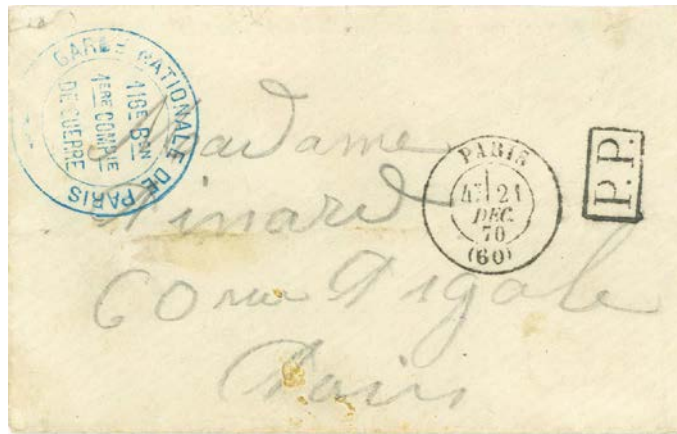 GARDE NATIONALE DE PARIS
116E BON
1ERE COMPIE
DE GUERRE
Madame
Pinard
60 rue Pigale
Paris
PARIS
21
DEC.
70
(60)
P.P.